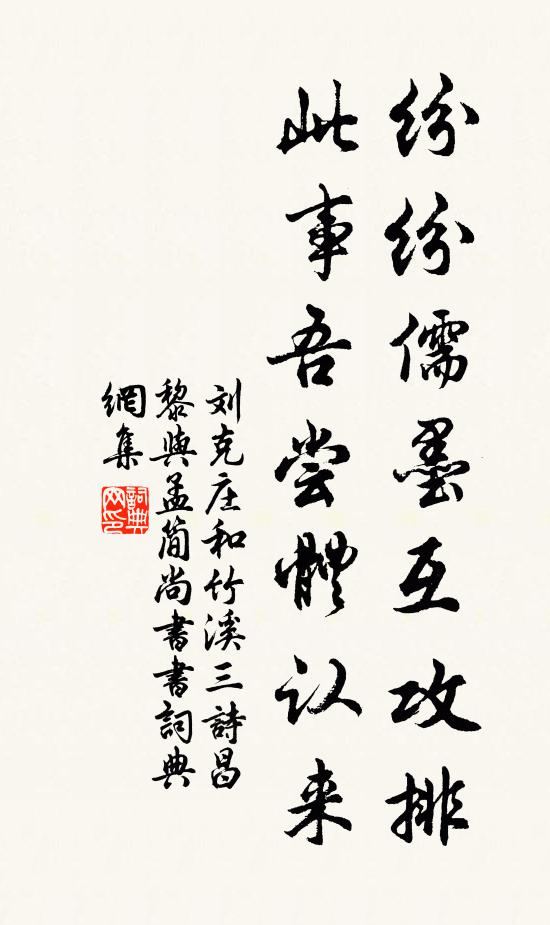 纷纷儒墨互攻排
此事吾尝體认来
刘克庄和竹溪三詩昌
黎與孟简尚書書詞典
網集
詞典网印